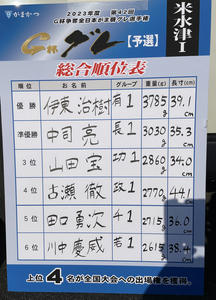 がまかつ
2023年度 第42回
G杯争奪全日本がま磯グレ選手権
G杯グレ【予選】
米水津Ⅰ
総合順位表
順位 お名前 グループ 重量(g) 長寸(cm)
優勝 伊東治樹 有1 3785g 39.1cm
準優勝 中司亮 長1 3030g 35.3cm
3位 山田宝 功1 2860g 34.0cm
4位 古瀬徹 政1 2770g 44.1cm
5位 田口勇次 1 2715g 36.0cm
6位 川中慶威 若1 2615g 38.4cm
上位4名が全国大会への出場権を獲得。